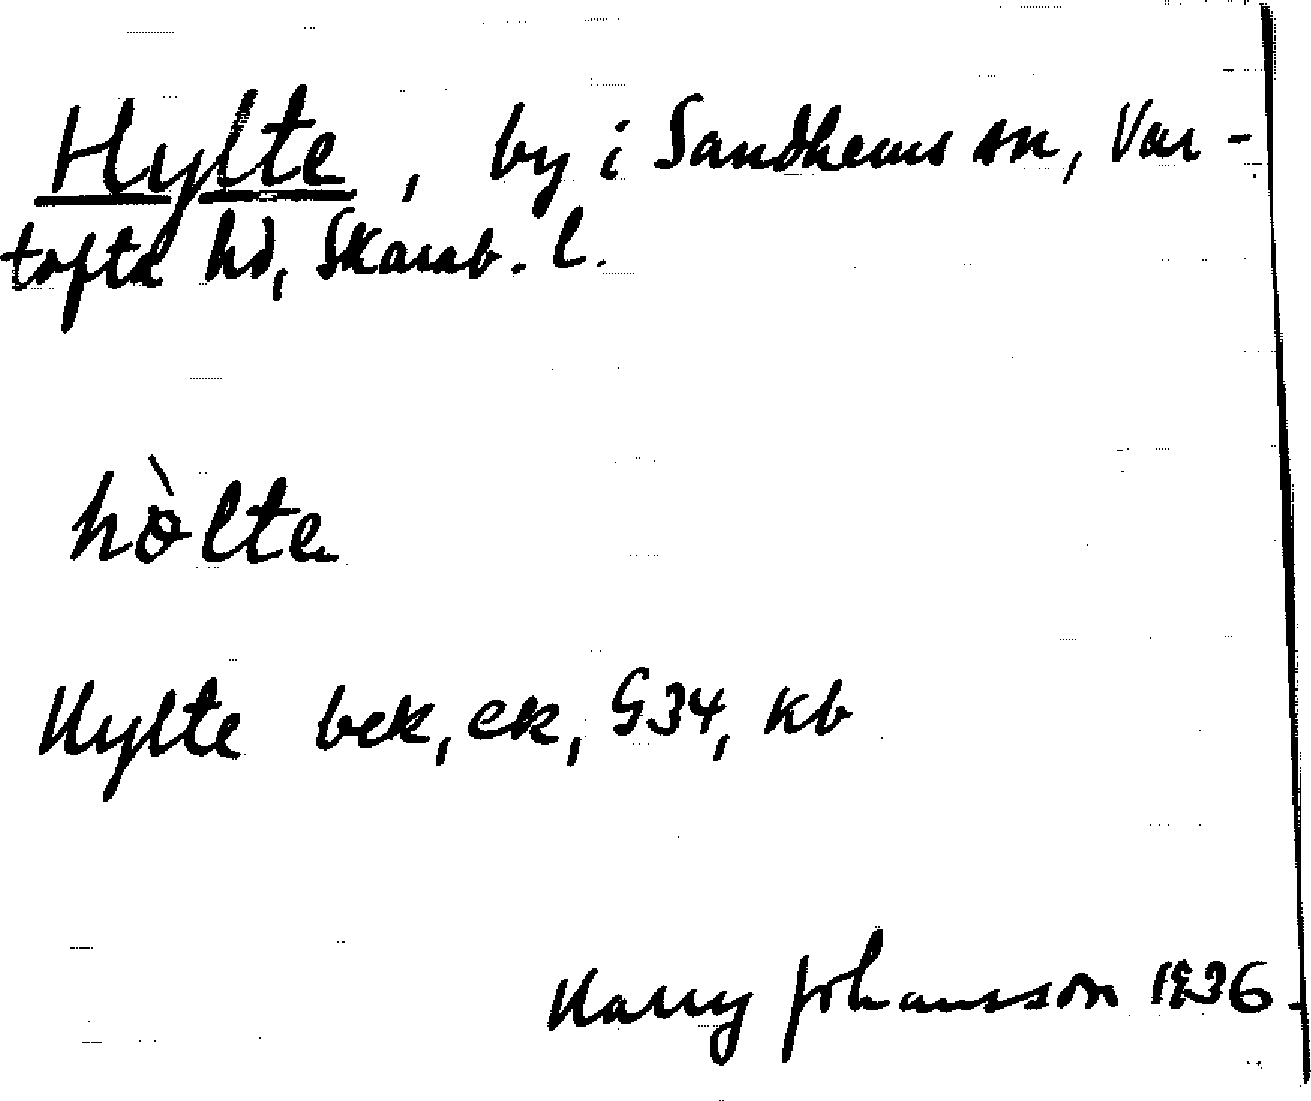 Hylte, by i Sandhems sn, Var-
tofta hd, Skarab. l.
hòlte
Hylte bek, ek, G34, kb
Harry Johansson 1936.